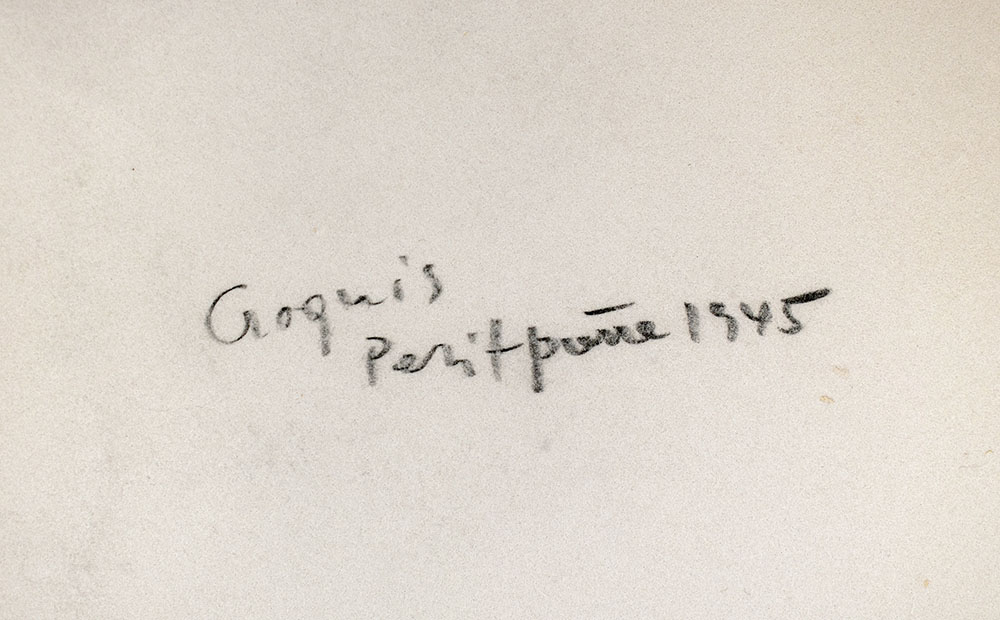 Croquis
Petitpierre 1945